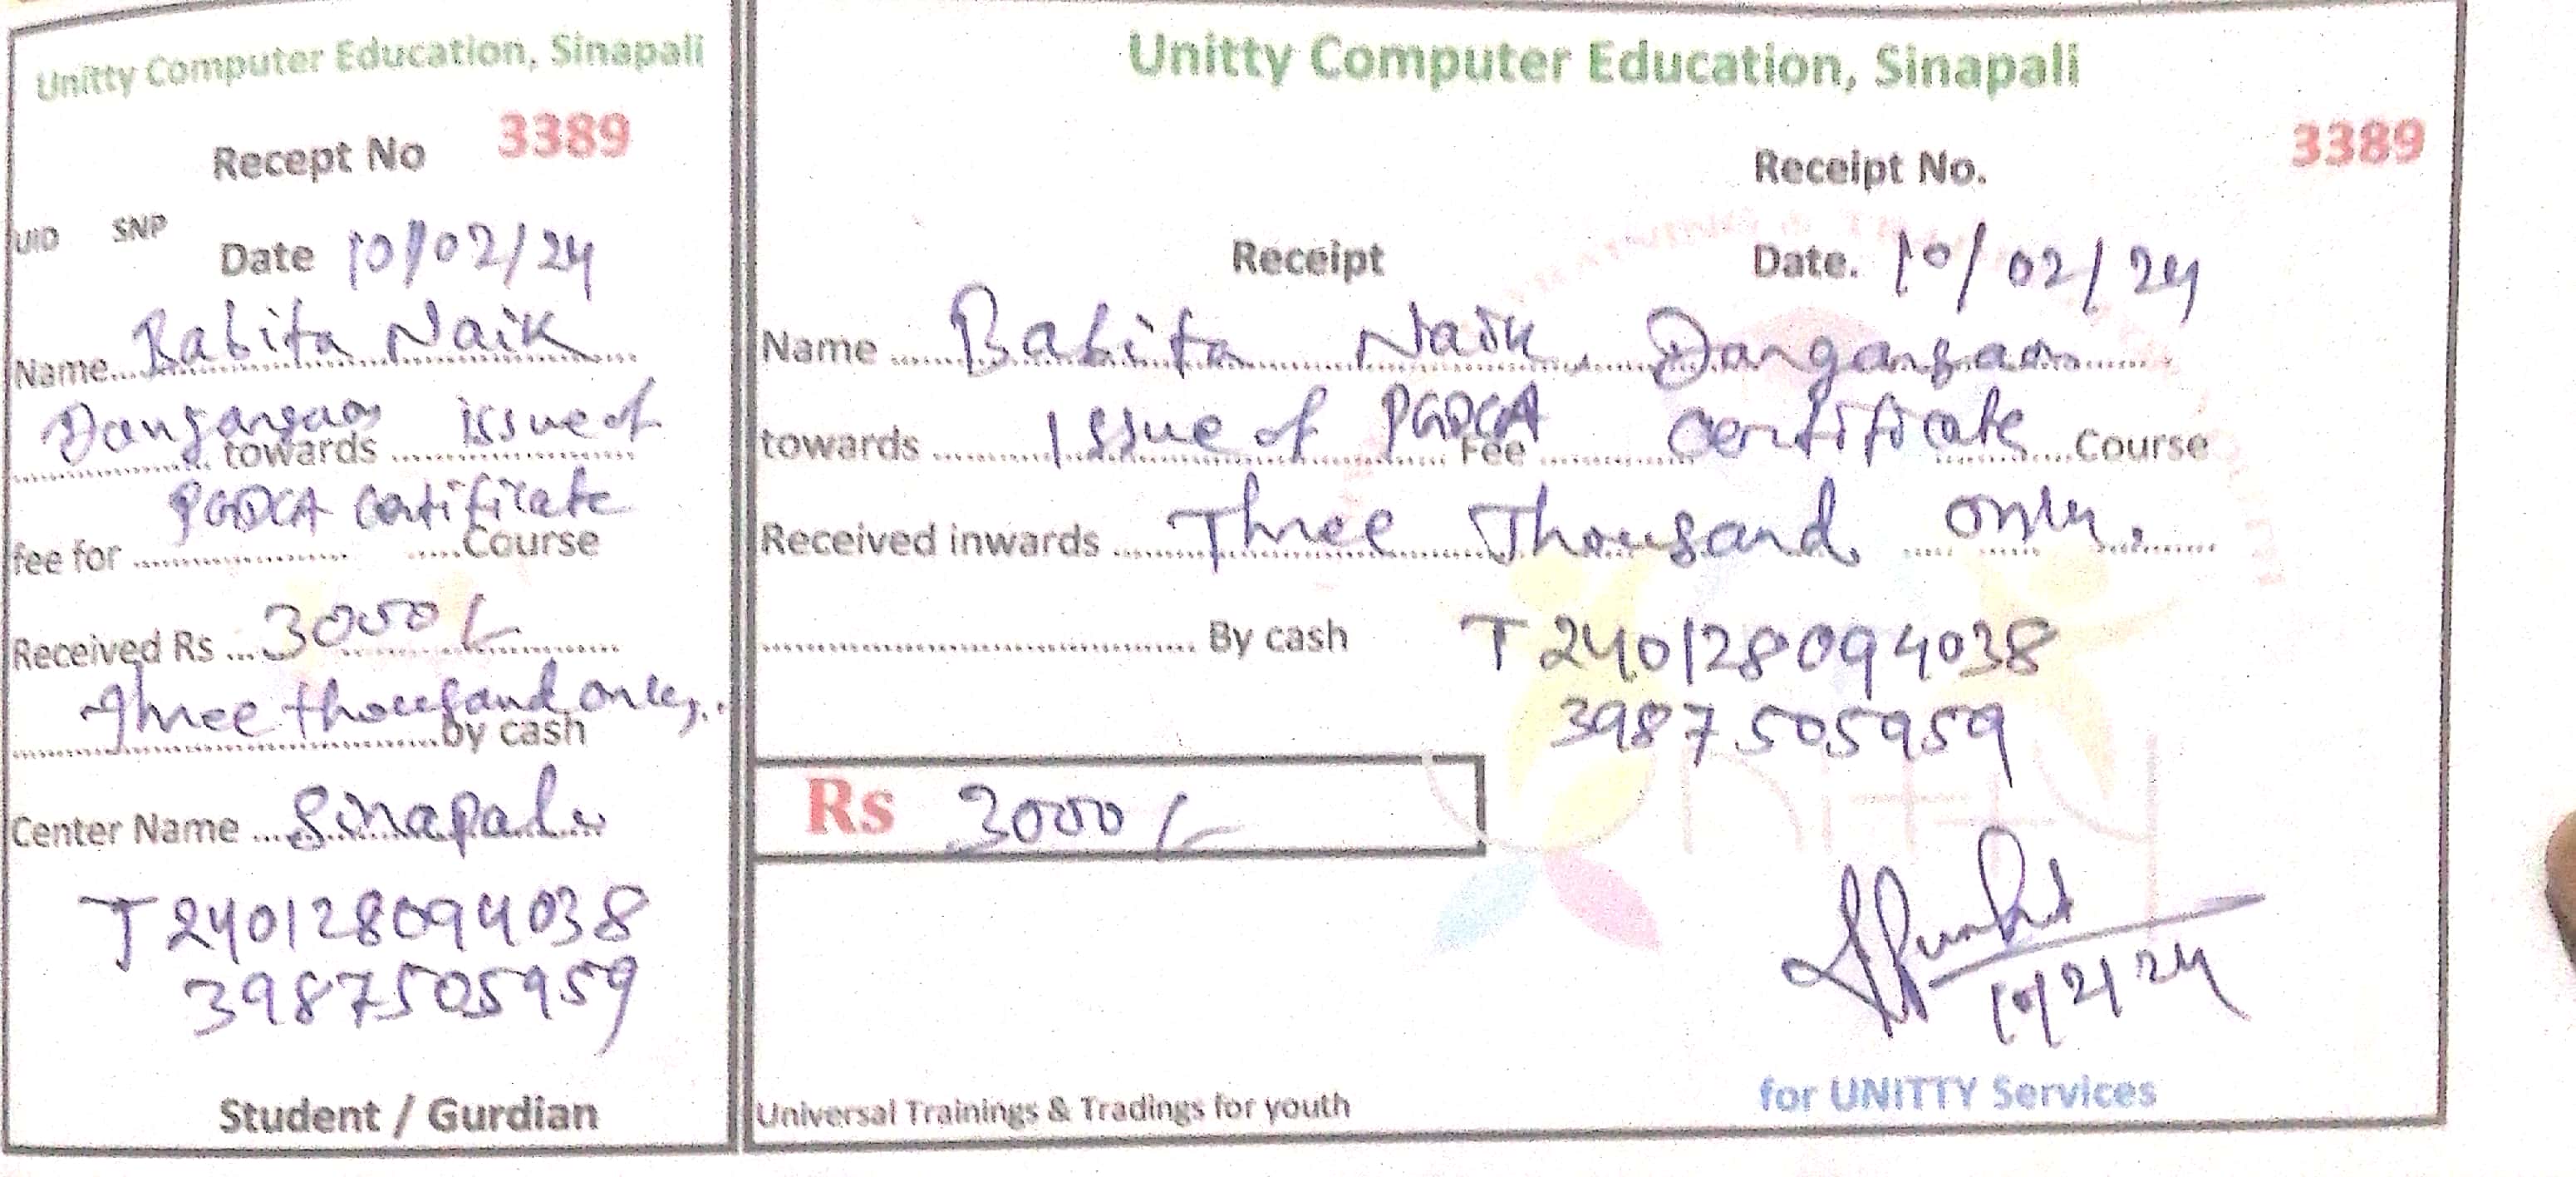 Unitty Computer Education, Sinapali
Recept No 3389
UID SNP
Date 10/02/24
Name Babita Naik
Dangargaon towards issue of
PGDCA Certificate
fee for Course
Received Rs 3000/-
Three thousand only
by cash
Center Name Sinapali
T240128094038
3987505959
Student / Gurdian
Unitty Computer Education, Sinapali
Receipt No. 3389
Receipt Date. 10/02/24
Name Babita Naik, Dangargaon
towards Issue of PGDCA Fee Certificate Course
Received inwards Three Thousand only.
By cash T240128094038
3987505959
Rs 3000/-
10/2/24
Universal Trainings & Tradings for youth
for UNITTY Services